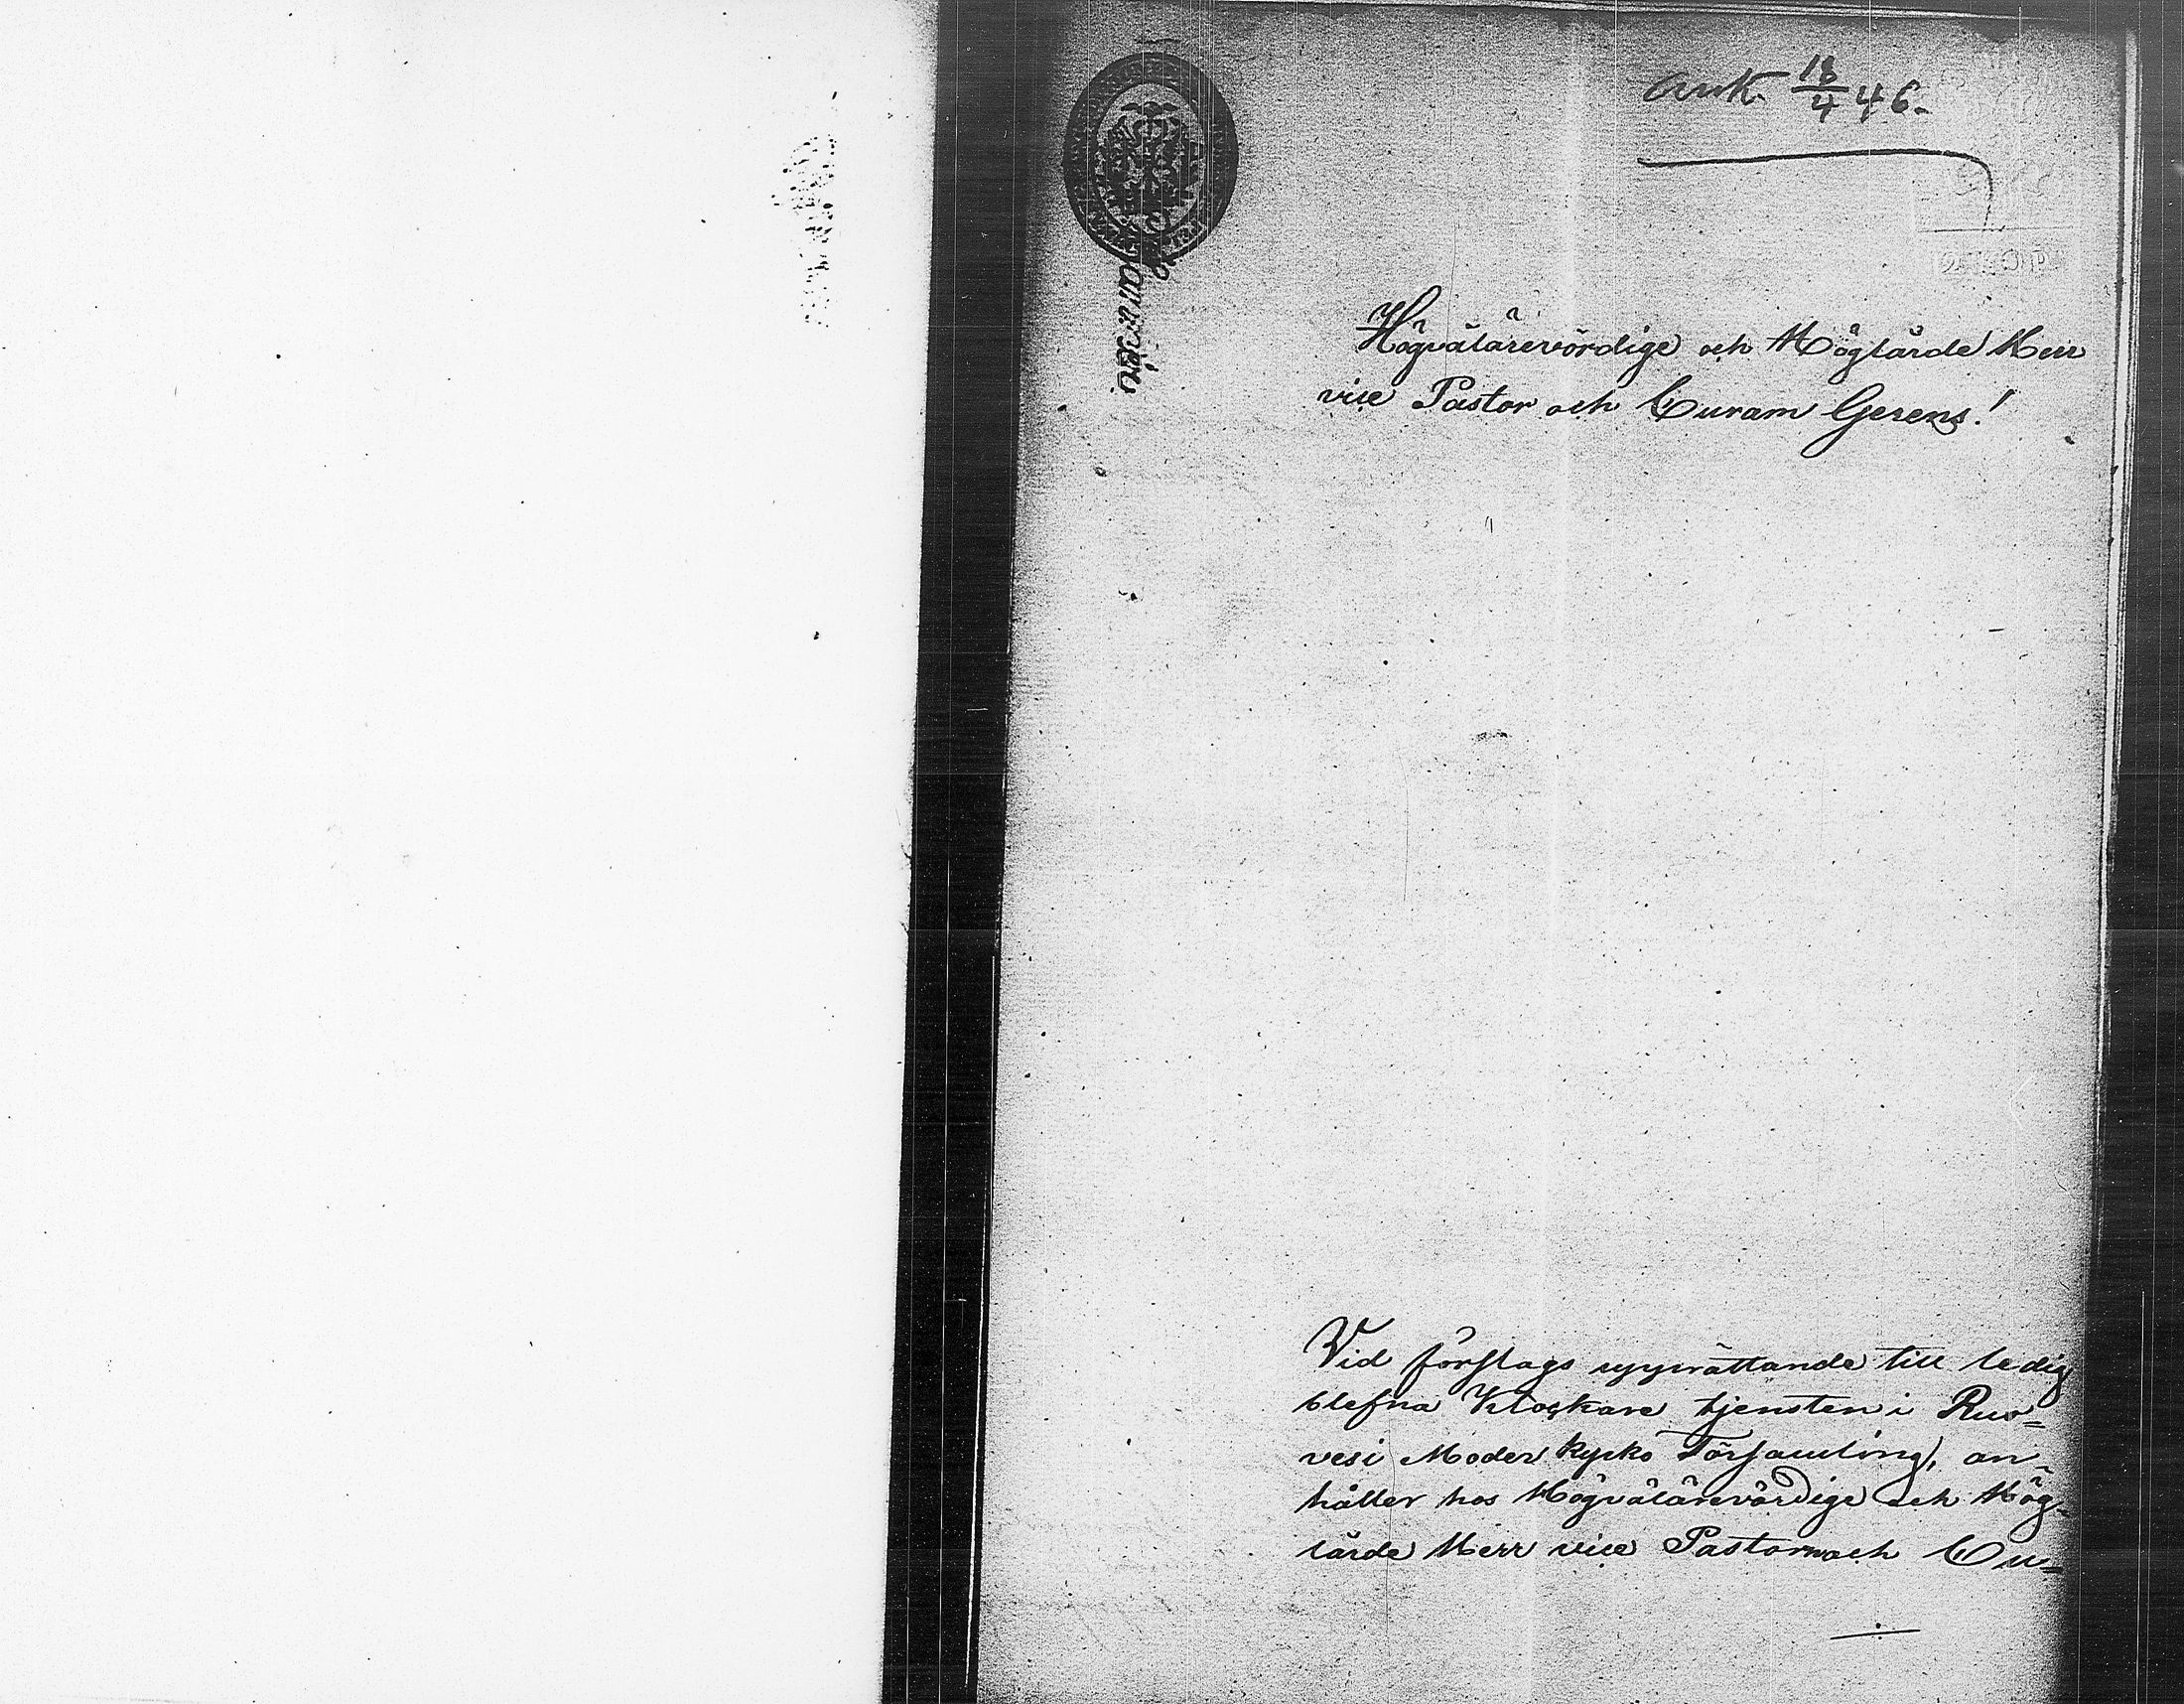 Ank. 18/4 46.
Högvälärevördige och Höglärde Herr
vice Pastor och Curam Gerens!
Vid förslags upprättande till ledig
blefna Klockare tjensten i Ruo=
vesi Moder kyrko Församling, an
håller hos Högvälärevördige och Hög-
lärde Herr vice Pastorn och Cu=